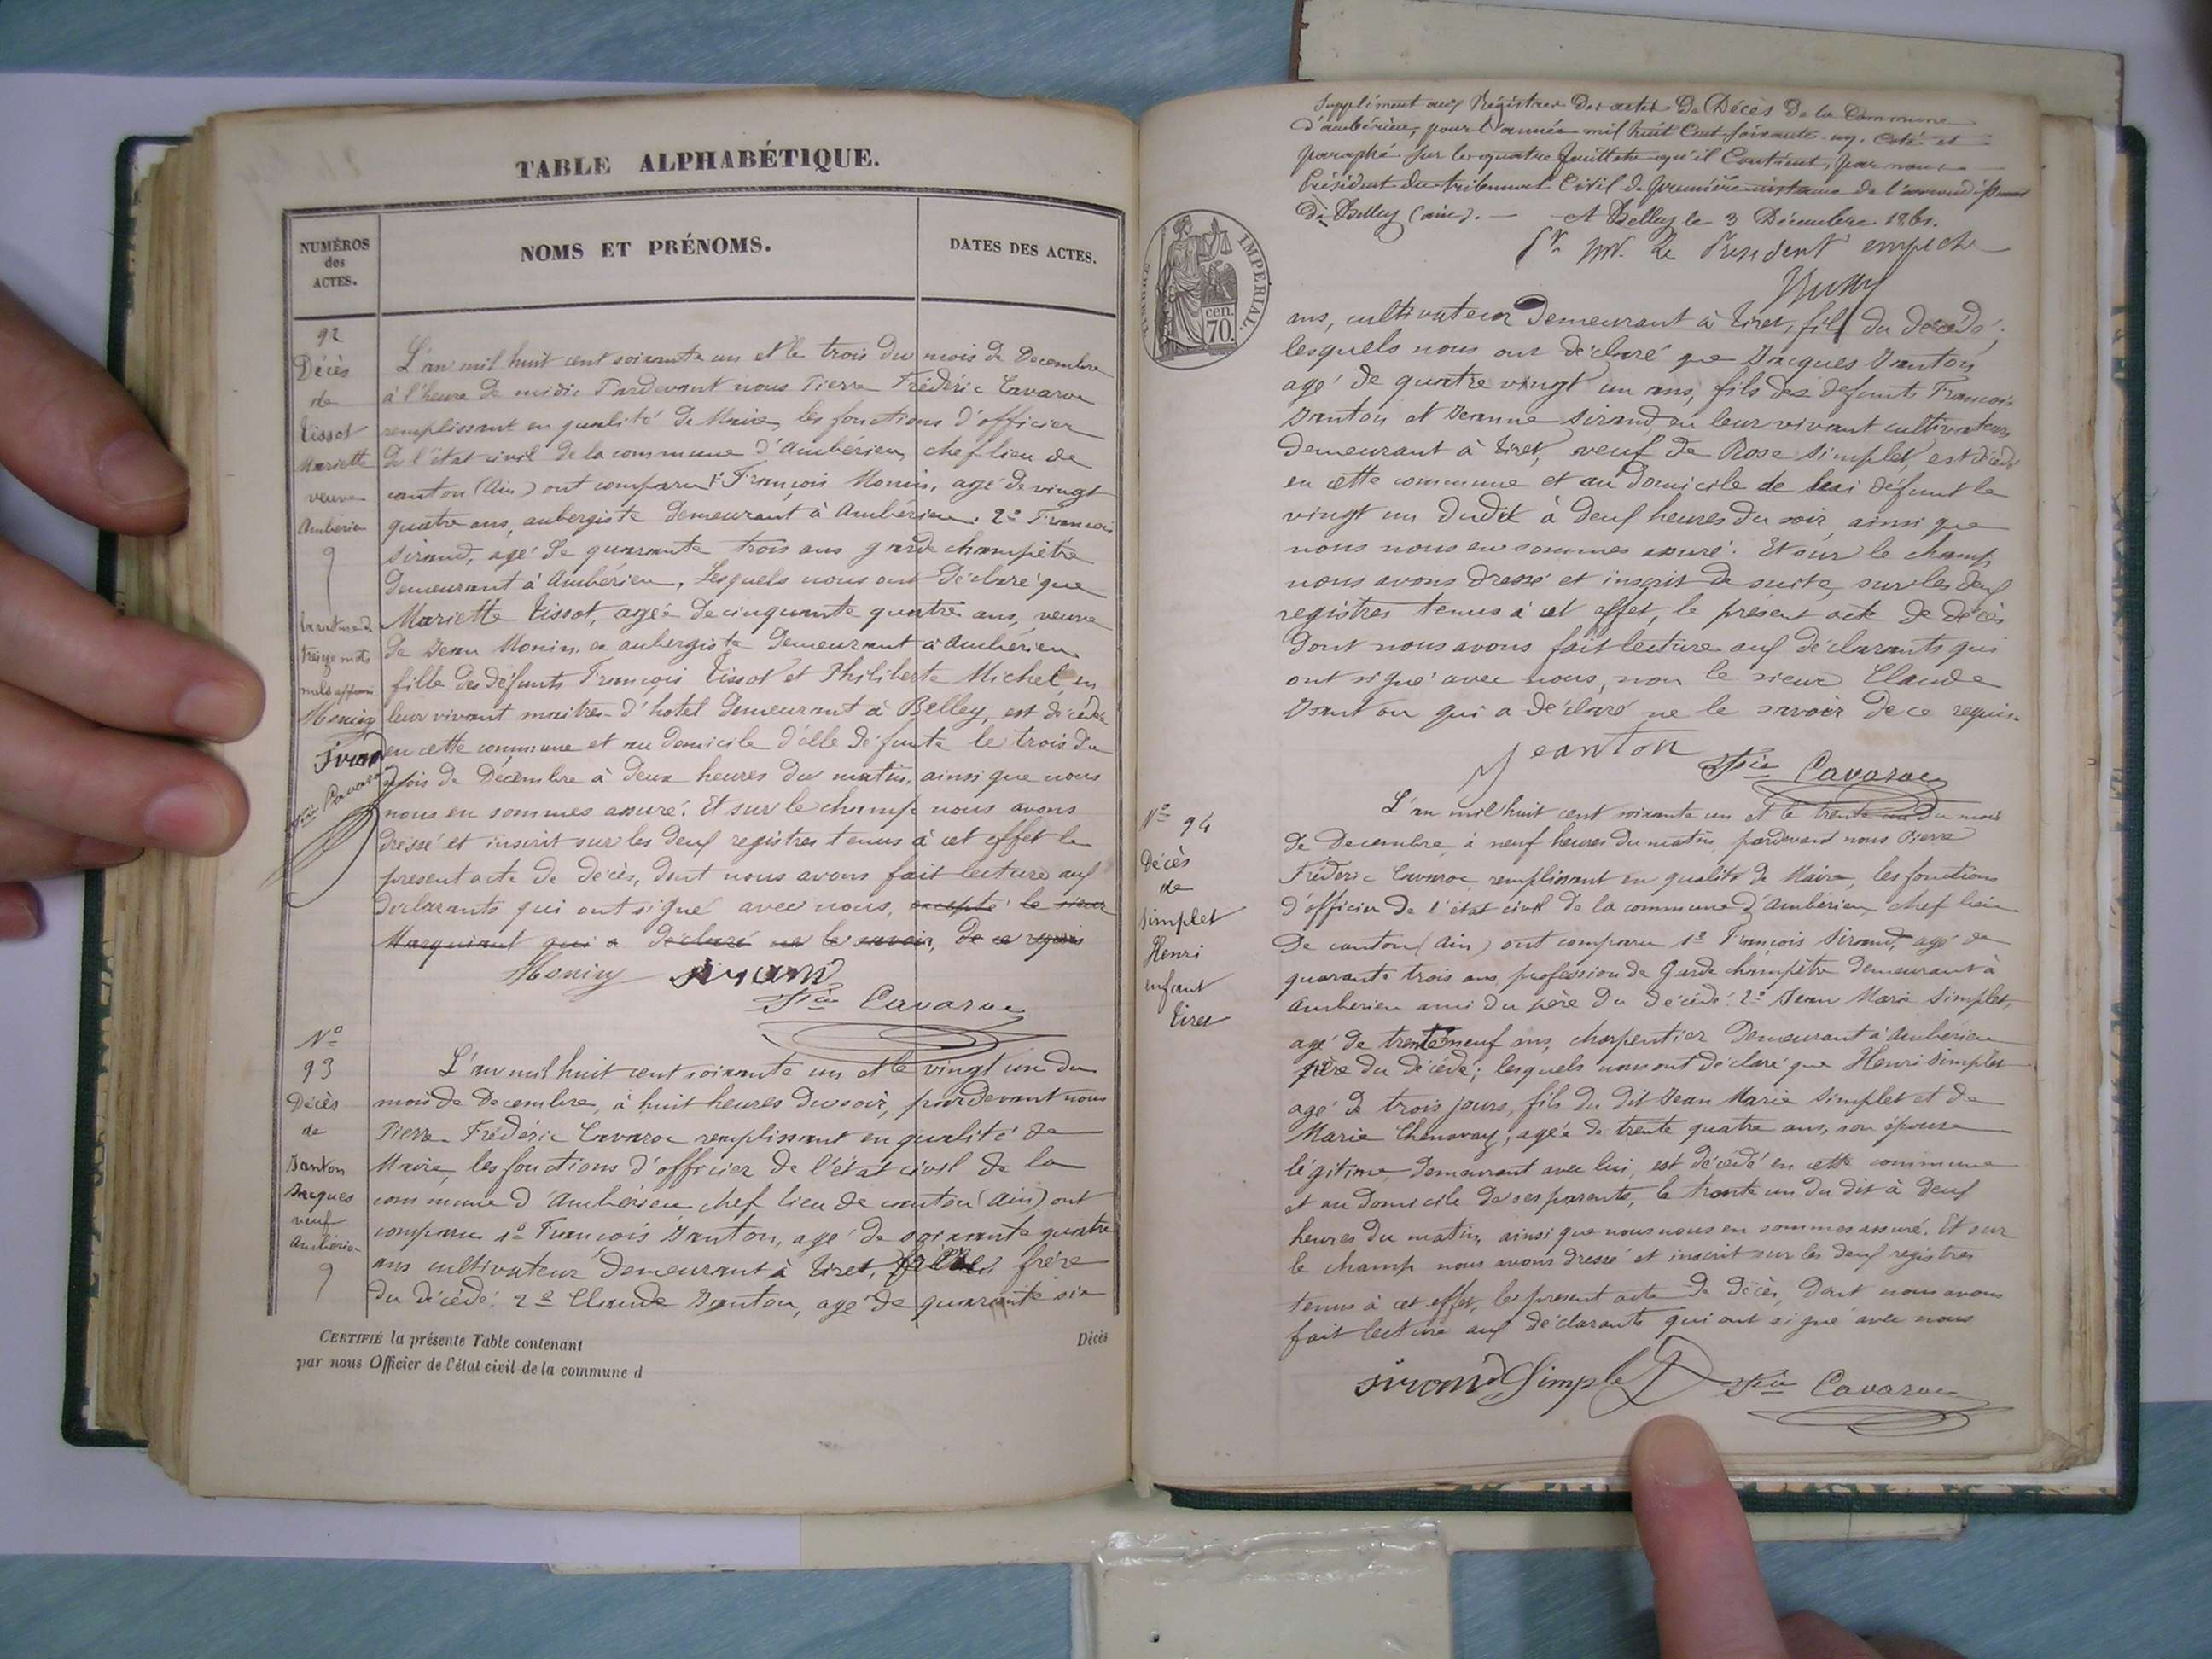 TABLE ALPHABÉTIQUE.
NUMÉROS
des
ACTES.
NOMS ET PRÉNOMS.
DATES DES ACTES.
92
Décès
de
Tissot
Mariette
veuve
Ambérieu
L'an mil huit cent soixante un et le trois du mois de Decembre
à l'heure de midi. Pardevant nous Pierre Frédéric Cavaroc
remplissant en qualité de Maire, les fonctions d'officier
de l'état civil de la commune d'Ambérieu, chef lieu de
canton (Ain) ont comparu 1° François Monin, agé de vingt
quatre ans, aubergiste demeurant à Ambérieu. 2° François
Sirand, agé de quarante trois ans garde champêtre
demeurant à Ambérieu, Lesquels nous ont déclaré que
Mariette Tissot, agée de cinquante quatre ans, veuve
de Jean Monin, aubergiste demeurant à Ambérieu
fille des défunts François Tissot et Philiberte Michel, en
leur vivant maitres d'hotel demeurant à Belley, est décédée
en cette commune et au domicile d'elle défunte le trois du
mois de Décembre à deux heures du matin, ainsi que nous
nous en sommes assuré. Et sur le champ nous avons
dressé et inscrit sur les deux registres tenus à cet effet le
present acte de décès, dont nous avons fait lecture aux
declarants qui ont signé avec nous, excepté le sieur
Marquinat qui a déclaré ne le savoir, de ce requis
treize mots
nuls
Monin
Sirand
Cavaroc
Monin Sirand
Cavaroc
N°
93
Décès
de
Janton
Jacques
veuf
Ambérieu
L'an mil huit cent soixante un et le vingt un du
mois de Decembre, à huit heures du soir, pardevant nous
Pierre Frédéric Cavaroc remplissant en qualité de
Maire, les fonctions d'officier de l'état civil de la
commune d'Ambérieu chef lieu de canton (Ain) ont
comparu 1° François Janton, agé de soixante quatre
ans cultivateur demeurant à Tiret, frère
du décédé. 2° Claude Janton, agé de quarante six
CERTIFIÉ la présente Table contenant
Décès
par nous Officier de l'état civil de la commune d
Supplément aux Régistres des actes de Décès de la Commune
d'ambérieu, pour l'année mil huit Cent soixante-un. Coté et
paraphé sur les quatre feuillets qu'il Contient, par nous
Président du tribunal Civil de première instance de l'arrondissement
de Belley (ain). A Belley le 3 Décembre 1861.
Pr Mr. Le President empeché
TIMBRE IMPÉRIAL.
70. cen.
ans, cultivateur demeurant à Tiret, fils du décédé,
lesquels nous ont déclaré que Jacques Janton
agé de quatre vingt un ans, fils des defunts François
Janton et Jeanne Sirand, en leur vivant cultivateurs
demeurant à Tiret, veuf de Rose Simplet, est décédé
en cette commune et au domicile de lui défunt le
vingt un dudit à deux heures du soir, ainsi que
nous nous en sommes assuré. Et sur le champ
nous avons dressé et inscrit de suite, sur les deux
registres tenus à cet effet, le présent acte de décès
dont nous avons fait lecture aux déclarants qui
ont signé avec nous, non le sieur Claude
Janton qui a déclaré ne le savoir de ce requis.
Jeanton Cavaroc
N° 94
Décès
de
Simplet
Henri
enfant
Tiret
L'an mil huit cent soixante un et le trente un du mois
de Decembre, à neuf heures du matin, pardevant nous Pierre
Fréderic Cavaroc remplissant en qualité de Maire, les fonctions
d'officier de l'état civil de la commune d'Ambérieu, chef lieu
de canton (Ain) ont comparu 1° François Sirand, agé de
quarante trois ans, profession de Garde champêtre demeurant à
Amberieu ami du père du décédé. 2° Jean Marie Simplet,
agé de trente neuf ans, charpentier demeurant à Amberieu
père du décédé; lesquels nous ont déclaré que Henri Simplet
agé de trois jours, fils du dit Jean Marie Simplet et de
Marie Chenavay, agée de trente quatre ans, son épouse
légitime demeurant avec lui, est décédé en cette commune
et au domicile de ses parents, le trente un du dit à deux
heures du matin, ainsi que nous nous en sommes assuré. Et sur
le champ nous avons dressé et inscrit sur les deux registres
tenus à cet effet, le present acte de décès, dont nous avons
fait lecture aux déclarants qui ont signé avec nous
Sirand Simplet Cavaroc